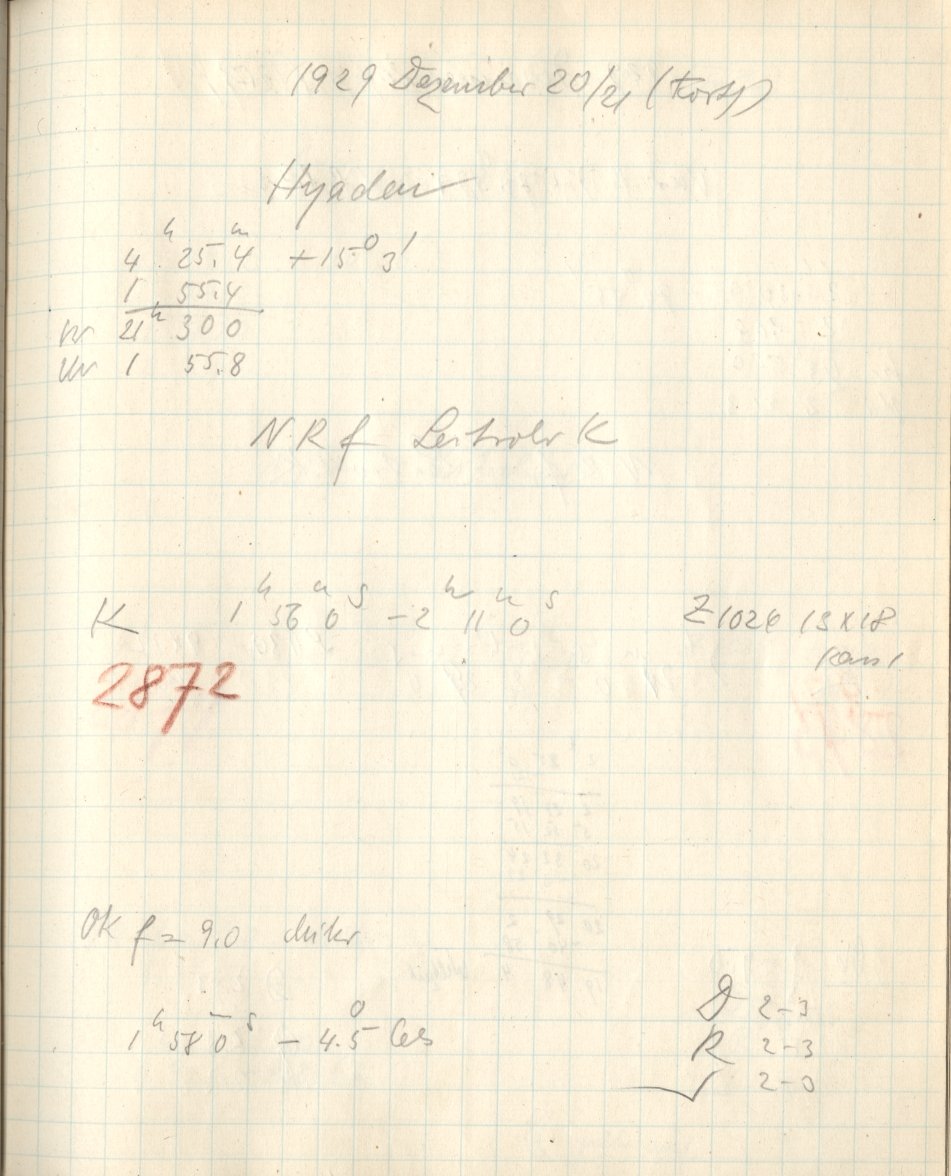 1929 Dezember 20/21 (Forts)
Hyaden
4ʰ 25,4ᵐ +15° 3'
1 55,4
21ʰ 30 0
Uhr 1 55,8
NRf Leitrohr K
K 1ʰ 56ᵐ 0ˢ – 2ʰ 11ᵐ 0ˢ Z 1026 13x18
2872
OK f = 9,0
1ʰ 58ᵐ 0ˢ – 4.5° Cels
D 2-3
R 2-3
2-0